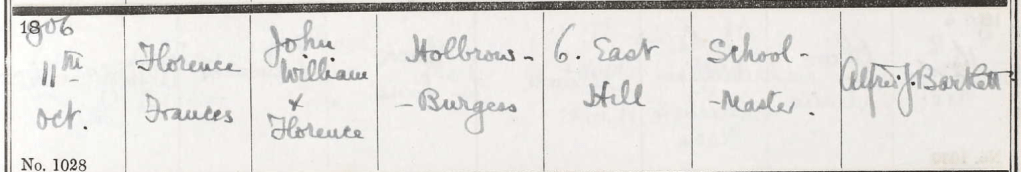 1906
11th
Oct.
Florence
Frances
John
William
&
Florence
Holbrow-
-Burgess
6. East
Hill
School-
-Master.
Alfred J. Bartlett
No. 1028